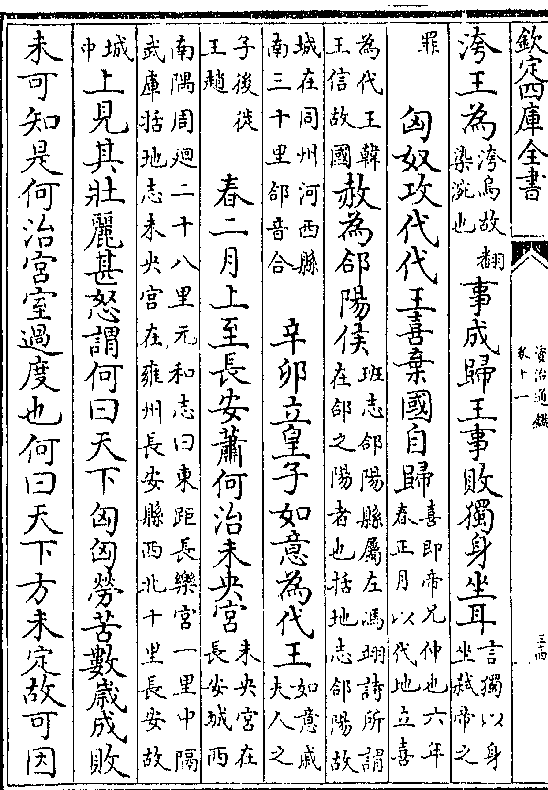 欽定四庫全書
資治通鑑
卷十一
洿王為洿烏故翻染涴也事成歸王事敗獨身坐耳言獨以身坐弑帝之
罪匈奴攻代代王喜棄國自歸喜即帝兄仲也六年春正月以代地立喜
為代王韓王信故國赦為郃陽侯班志郃陽縣屬左馮翊詩所謂在郃之陽者也括地志郃陽故
城在同州河西縣南三十里郃音合辛卯立皇子如意為代王如意戚夫人之
子後徙王趙春二月上至長安蕭何治未央宮未央宮在長安城西
南隅周廻二十八里元和志曰東距長樂宮一里中隔武庫括地志未央宮在雍州長安縣西北十里長安故
城中上見其壯麗甚怒謂何曰天下匈匈勞苦數歲成敗
未可知是何治宮室過度也何曰天下方未定故可因